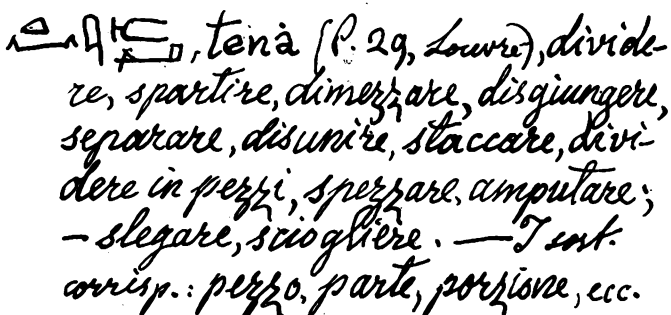 , tenȧ (P. 29, Louvre), divide-
re, spartire, dimezzare, disgiungere,
separare, disunire, staccare, divi-
dere in pezzi, spezzare, amputare;
– slegare, sciogliere. — I sost.
corrisp.: pezzo, parte, porzione, ecc.